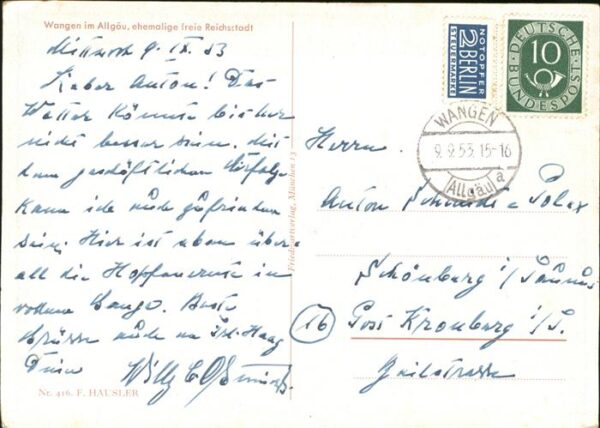 Wangen im Allgäu, ehemalige freie Reichsstadt
Mittwoch 9. IX. 53
Lieber Anton! Das
Wetter könnte bisher
nicht besser sein. Mit
dem geschäftlichen Erfolge
kann ich auch zufrieden
sein. Hier ist eben über-
all die Hopfenernte in
vollem Gange. Beste
Grüsse auch an
Dein Willy
Nr. 416. F. HÄUSLER
München 13
NOTOPFER
2 BERLIN
STEUERMARKE
DEUTSCHE
BUNDESPOST
10
WANGEN
9.9.53.15-16
(Allgäu) a
Herrn
Anton
Schönberg i/Taunus
16
Post Kronberg i/T.